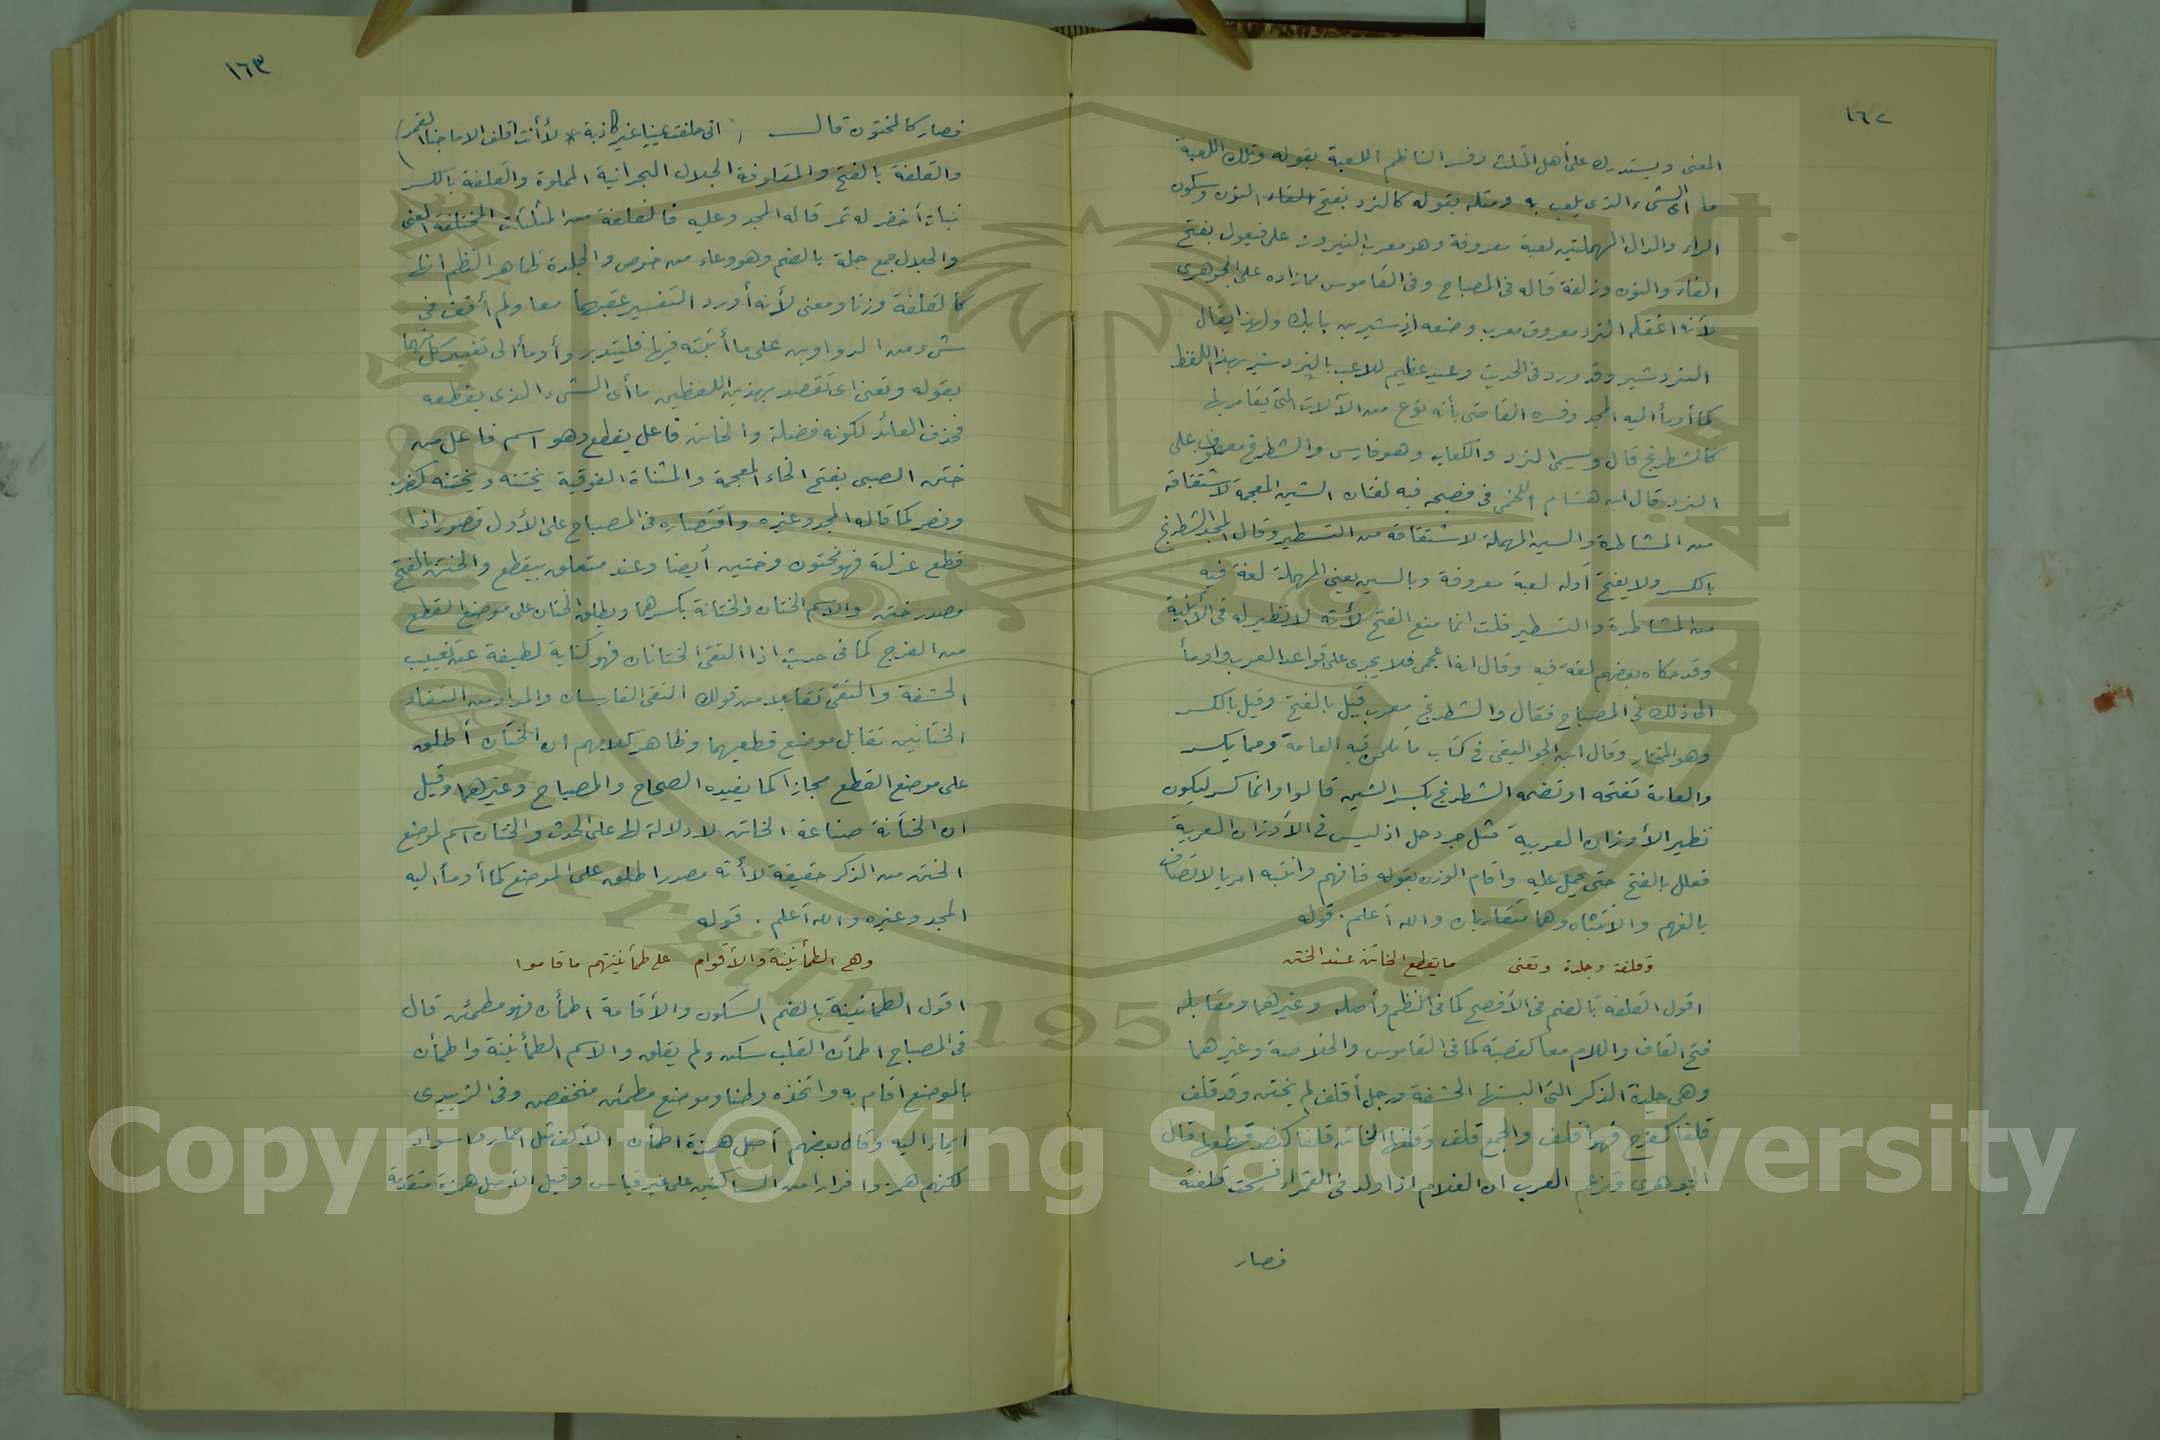 ١٦٢
المعنى ويستدرك على أهل المثلث وفسر الناظم اللعبة بقوله وتلك اللعبة
ما أى الشىء الذى يلعب به ومثله بقوله كالنرد بفتح النون وسكون
الراء والدال المهملتين لعبة معروفة وهو معرب النيروز على فيعول بفتح
الفاء والنون وزلغة قاله فى المصباح وفى القاموس مما زاده على الجوهرى
لأنه اغفله النرد معروف معرب وضعه ازدشير بن بابك ولهذا يقال
النردشير وقد ورد فى الحديث وعيد عظيم للاعب بالنردشير بهذا اللفظ
كما أومأ اليه المجد وفسره القاضى بأنه نوع من الآلات التى يقامر بها
كالشطرنج قال ويسمى النرد والكعاب وهو فارسى والشطرنج معطوف على
النرد قال ابن هشام اللخمى فى فصيحه فيه لغتان الشين المعجمة لاشتقاقه
من المشاطرة والسين المهملة لاشتقاقه من التسطير وقال المجد الشطرنج
بالكسر ولا يفتح أوله لعبة معروفة وبالسين يعنى المهملة لغة فيه
من المشاطرة والتسطير قلت انما منع الفتح لأنه لا نظير له فى الأبنية
وقد حكاه بعضهم لغة فيه وقال انه اعجمى فلا يجرى على قواعد العرب واومأ
الى ذلك فى المصباح فقال والشطرنج معرب قيل بالفتح وقيل بالكسر
وهو المختار وقال ابن الجواليقى فى كتاب ما تلحن فيه العامة ومما يكسر
والعامة تفتحه او تضمه الشطرنج بكسر الشين قالوا وانما كسر ليكون
نظير الأوزان العربية مثل جردحل اذ ليس فى الأوزان العربية
فعلل بالفتح حتى يحمل عليه واقام الوزن بقوله فافهم وانتبه امر بالاتصاف
بالفهم والانتباه وهما متقاربان والله أعلم . قوله
وقلفة وجلدة وتعنى ما يقطع الخاتن عند الختن
اقول القلفة بالضم فى الأفصح كما فى النظم وأصله وغيرهما ومقابله
فتح القاف واللام معا كقصبة كما فى القاموس والخلاصة وغيرهما
وهى جلدة الذكر التى البستها الحشفة ورجل أقلف لم يختن وقد قلف
قلفا كفرح فهو أقلف والجمع قلف وقلفها الخاتن قلفا كنصر قطعها قال
الجوهرى وتزعم العرب ان الغلام اذا ولد فى القمراء فسحت قلفته
فصار
١٦٣
فصار كالمختون قال ( انى حلفت يمينا غير كاذبة * لأنت أقلف الا ما جنا القمر )
والقلفة بالفتح والمقلوفة الجلال البحرانية المملوة والقلفة بالكسر
نبات أخضر له ثمر قاله المجد وعليه فالقلفة من المثلثات المختلفة المعنى
والجلال جمع جلة بالضم وهو وعاء من خوص والجلدة ظاهر النظم انها
كالقلفة وزنا ومعنى لأنه أورد التفسير عقبهما معا ولم أقف فى
شىء من الدواوين على ما أثبته فيها فليتدبر وأومأ الى تفسير كل منهما
بقوله وتعنى اى تقصد بهذين اللفظين ما أى الشىء الذى يقطعه
فحذف العائد لكونه فضلة والخاتن فاعل يقطع وهو اسم فاعل من
ختن الصبى بفتح الخاء المعجمة والمثناة الفوقية يختنه ويختنه كضرب
ونصر كما قاله المجد وغيره واقتصاره فى المصباح على الأول قصور اذا
قطع غرلته فهو مختون وختين أيضا وعند متعلق بيقطع والختن بالفتح
مصدر ختن والاسم الختان والختانة بكسرهما ويطلق الختان على موضع القطع
من الفرج كما فى حديث اذا التقى الختانان فهو كناية لطيفة عن تغييب
الحشفة والتقى تقابلا من قولك التقى الفارسان والمراد من التقاء
الختانين تقابل موضع قطعيهما وظاهر كلامهم ان الختان أطلق
على موضع القطع مجازا كما يفيده الصحاح والمصباح وغيرهما وقيل
ان الختانة صناعة الخاتن لا دلالة لها على الحدث والختان اسم لموضع
الختن من الذكر حقيقة لا أنه مصدر اطلق على الموضع كما أومأ اليه
المجد وغيره والله أعلم . قوله
وهى الطمأنينة والأقوام على طمأنينتهم ما قاموا
اقول الطمأنينة بالضم السكون والأقامة اطمأن فهو مطمئن قال
فى المصباح اطمأن القلب سكن ولم يقلق والاسم الطمأنينة واطمأن
بالموضع اقام به واتخذه وطنا وموضع مطمئن منخفض وفى الزبيدى
ايماء اليه وقال بعضهم أصل همزة اطمأن الألف مثل احمار واسواد
لكنهم همزوا فرارا من الساكنين على غير قياس وقيل الأصل همزة متقدمة
Copyright © King Saud University
1957